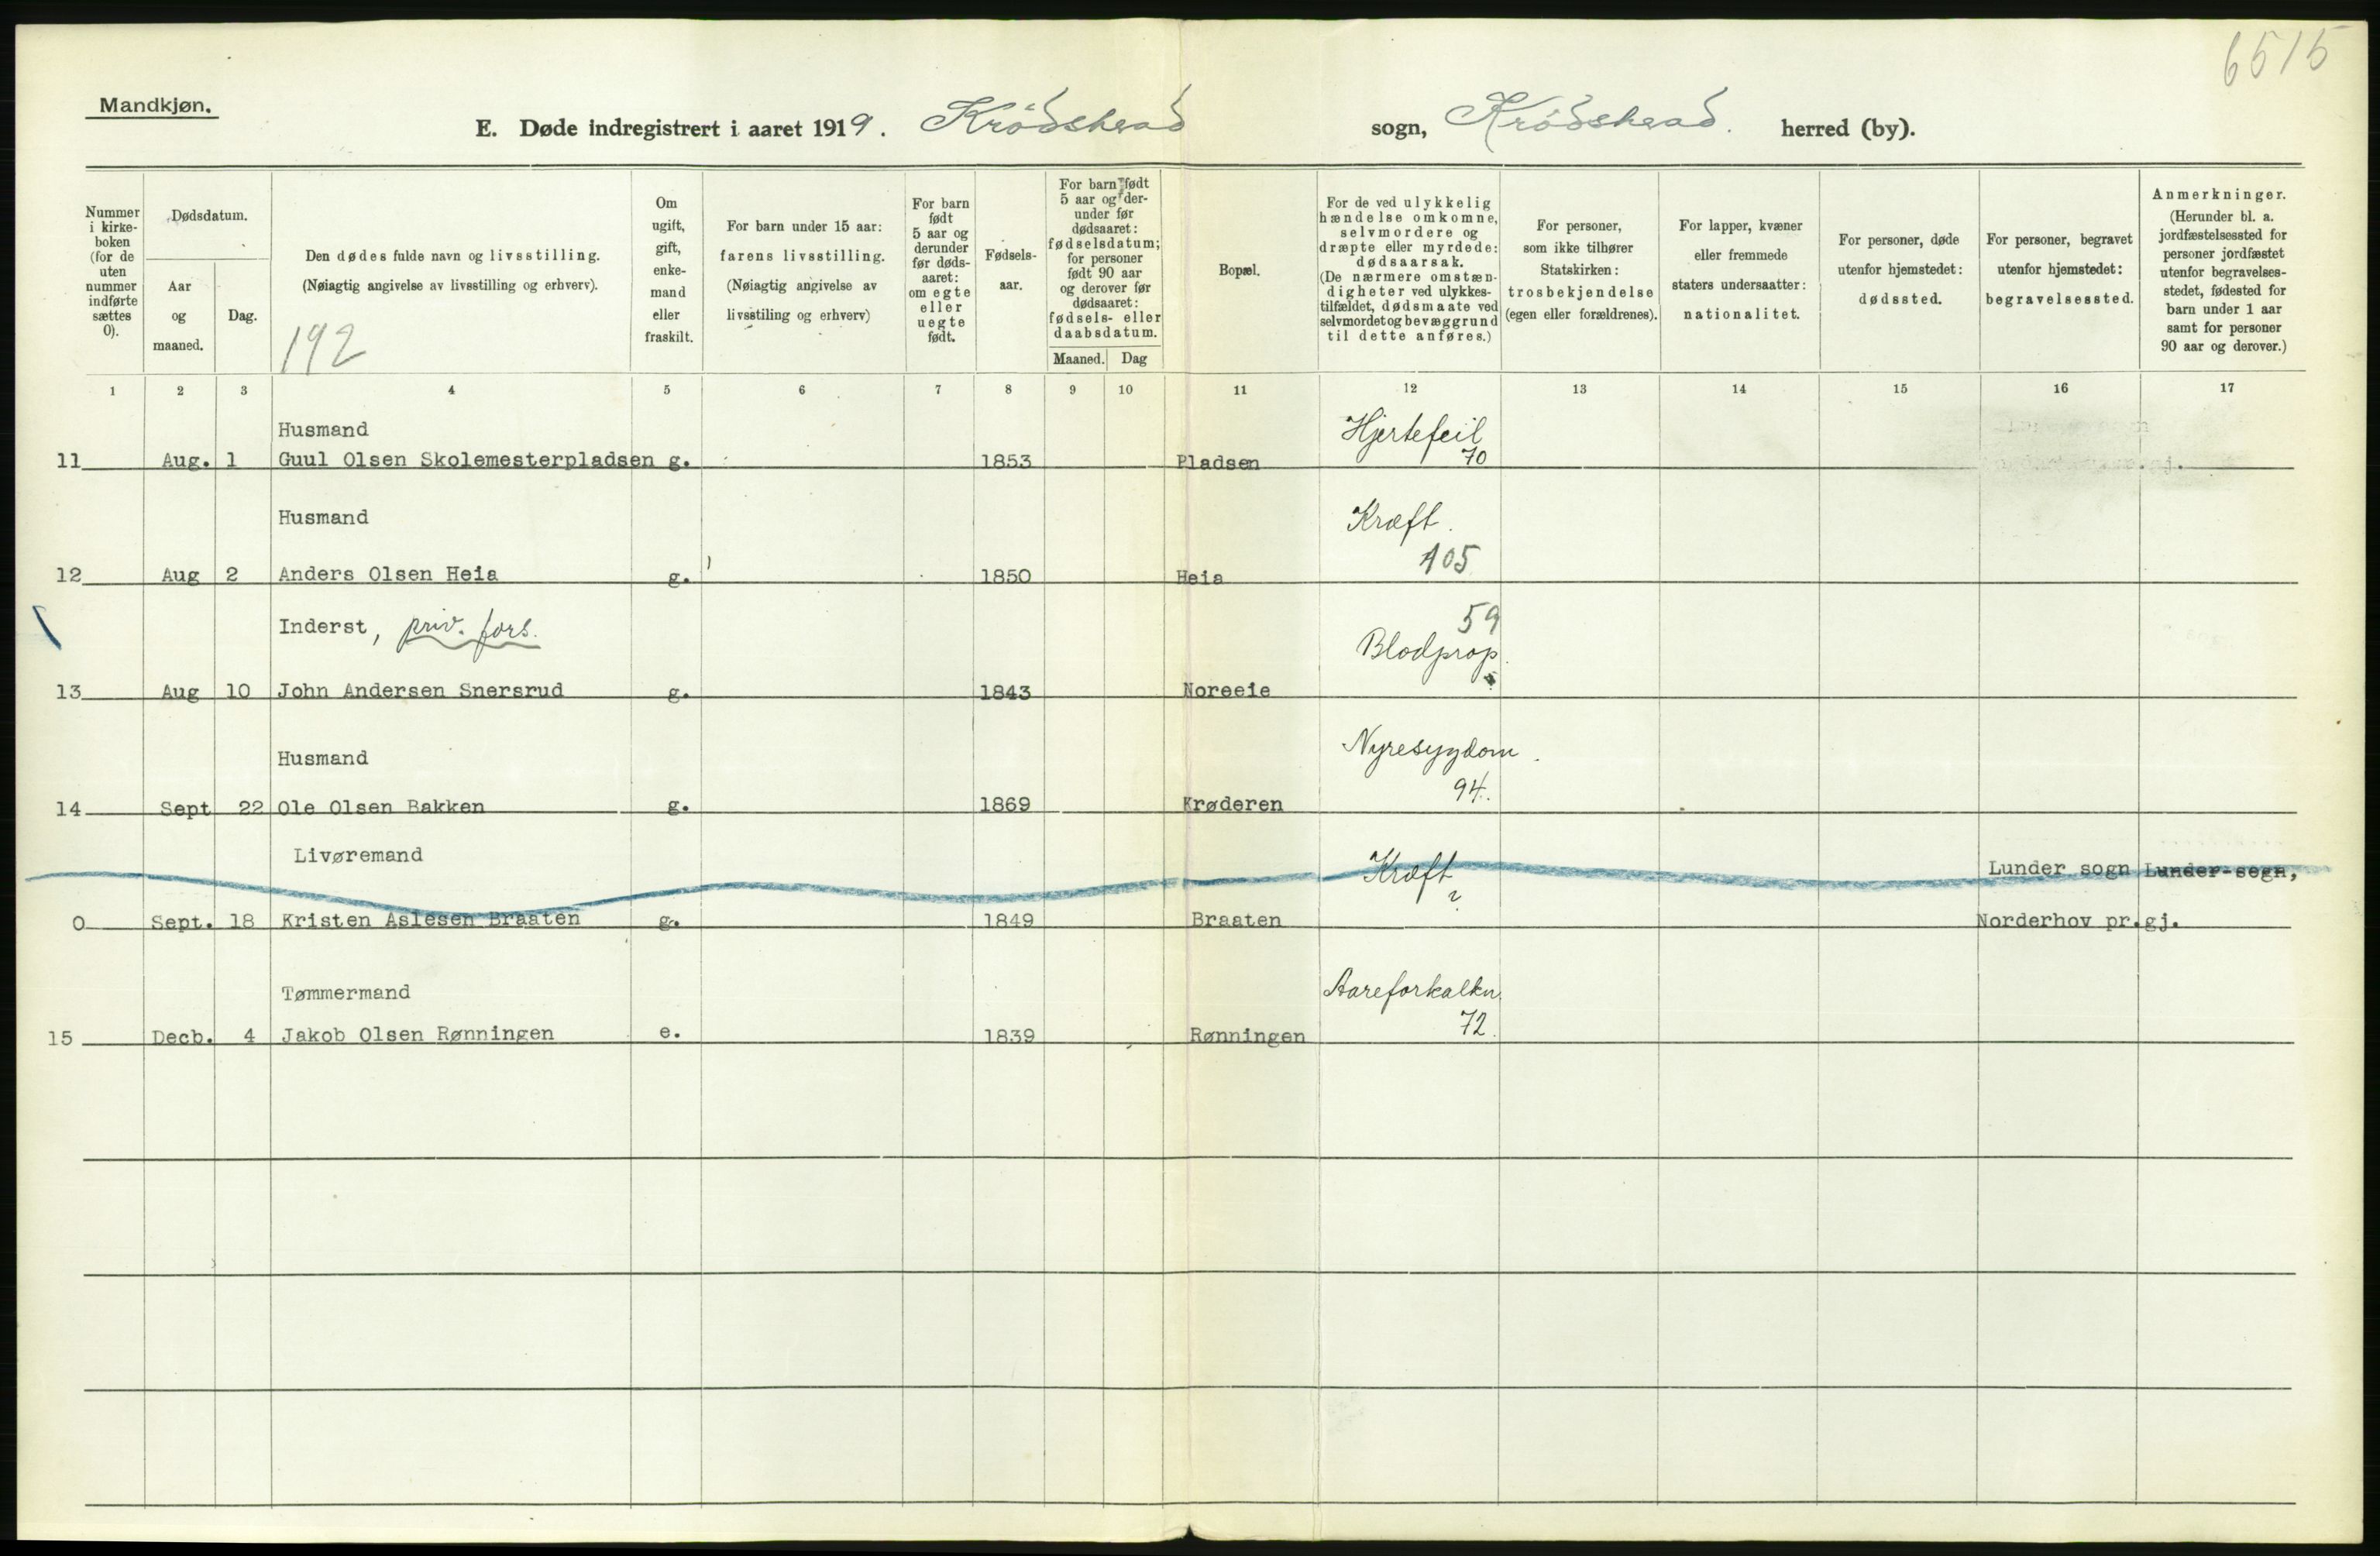 6515
Mandkjøn.
E. Døde indregistrert i aaret 1919. Krödsherad sogn, Krödsherad. herred (by).
Nummer
i kirke-
boken
(for de
uten
nummer
indførte
sættes
0).
Dødsdatum.
Aar
og
maaned.
Dag.
Den dødes fulde navn og livsstilling.
(Nøiagtig angivelse av livsstilling og erhverv).
192
Om
ugift,
gift,
enke-
mand
eller
fraskilt.
For barn under 15 aar:
farens livsstilling.
(Nøiagtig angivelse av
livsstiling og erhverv)
For barn
født
5 aar og
derunder
før døds-
aaret:
om egte
eller
uegte
født.
Fødsels-
aar.
For barn født
5 aar og der-
under før
dødsaaret:
fødselsdatum;
for personer
født 90 aar
og derover før
dødsaaret:
fødsels- eller
daabsdatum.
Maaned. Dag
Bopæl.
For de ved ulykkelig
hændelse omkomne,
selvmordere og
dræpte eller myrdede:
dødsaarsak.
(De nærmere omstæn-
digheter ved ulykkes-
tilfældet, dødsmaate ved
selvmordet og bevæggrund
til dette anføres.)
For personer,
som ikke tilhører
Statskirken:
trosbekjendelse
(egen eller forældrenes).
For lapper, kvæner
eller fremmede
staters undersaatter:
nationalitet.
For personer, døde
utenfor hjemstedet:
dødssted.
For personer, begravet
utenfor hjemstedet:
begravelsessted.
Anmerkninger.
(Herunder bl. a.
jordfæstelsessted for
personer jordfæstet
utenfor begravelses-
stedet, fødested for
barn under 1 aar
samt for personer
90 aar og derover.)
1 2 3 4 5 6 7 8 9 10 11 12 13 14 15 16 17
Husmand Hjertefeil
11 Aug. 1 Guul Olsen Skolemesterpladsen g. 1853 Pladsen 70
Husmand Kræft.
12 Aug 2 Anders Olsen Heia g. 1850 Heia 105
Inderst, priv. fors. 59
Blodprop.
13 Aug 10 John Andersen Snersrud g. 1843 Noreeie
Husmand Nyresygdom.
14 Sept 22 Ole Olsen Bakken g. 1869 Krøderen 94.
Livøremand Kræft Lunder sogn Lunder sogn,
?
0 Sept. 18 Kristen Aslesen Braaten g. 1849 Braaten Norderhov pr.gj.
Tømmermand Aareforkalkn.
15 Decb. 4 Jakob Olsen Rønningen e. 1839 Rønningen 72.